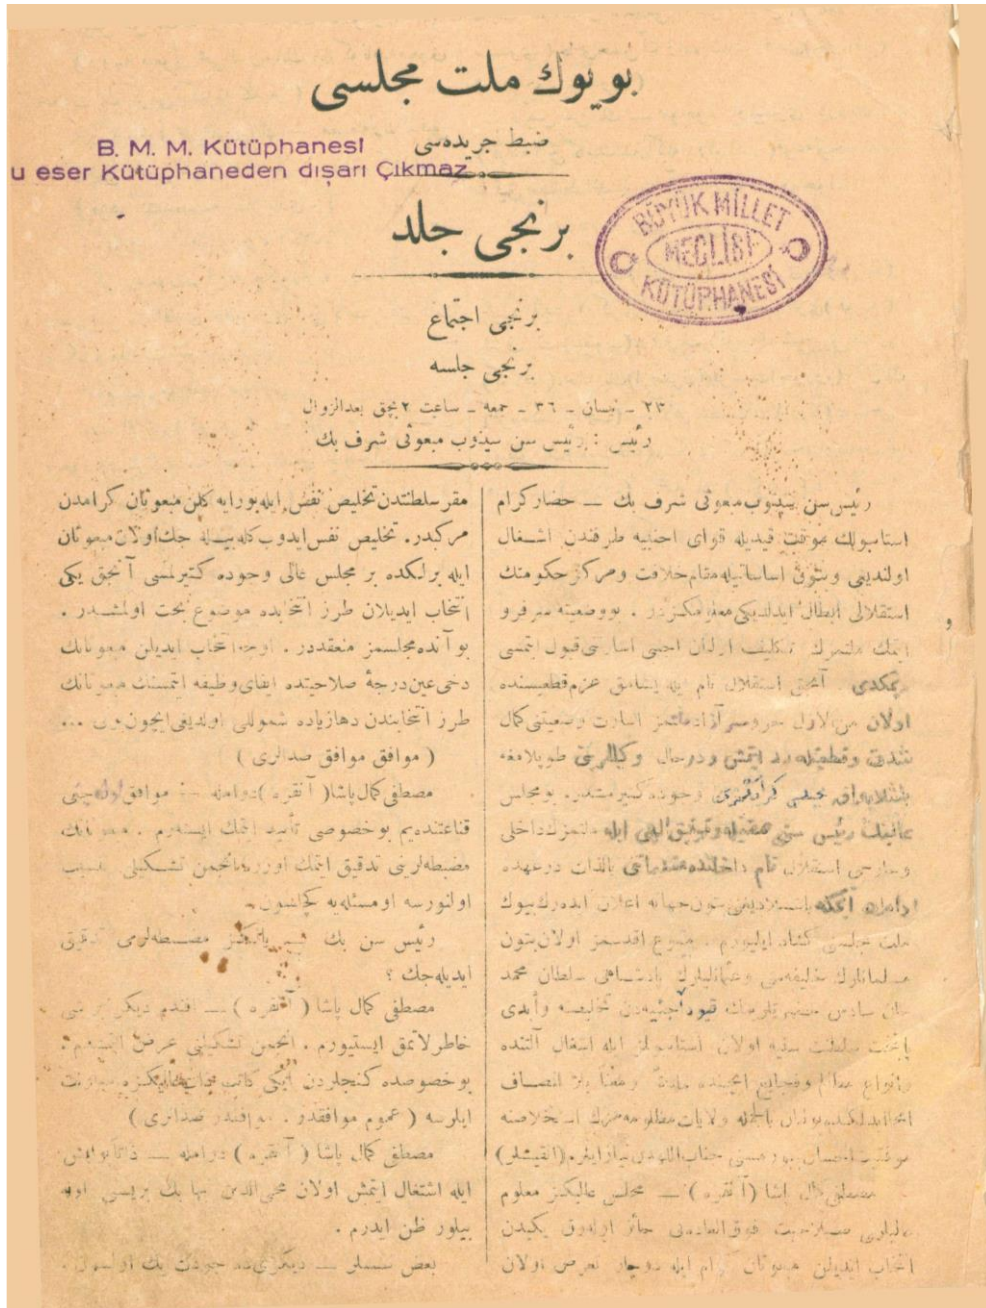 بويوك ملت مجلسى
ضبط جريده‌سى
B. M. M. Kütüphanesi
u eser Kütüphaneden dışarı Çıkmaz
برنجى جلد
BÜYÜK MİLLET
MECLİSİ
KÜTÜPHANESİ
برنجى اجتماع
برنجى جلسه
٢٣ ـ نيسان ـ ٣٦ ـ جمعه ـ ساعت ٢ بچق بعدالزوال
رئيس : رئيس سن سينوب مبعوثى شرف بك
رئيس سن سينوب مبعوثى شرف بك — حضار كرام
استانبولك موقت قيديله قواى اجنبيه طرفندن اشغال
اولنديغى وبتون اساساتيله مقام خلافت ومركز حكومتك
استقلالى ابطال ايدلديكى معلومكزدر . بو وضعيته سرفرو
ايتمك ملتمزك تكليف اولنان اجنبى اسارتنى قبول ايتمسى
ديمكدى . آنجق استقلال تام ايله يشامق عزم قطعيسنده
اولان من‌الازل حر وسرآزاد ملتمز اسارت وضعيتنى كمال
شدت وقطعيتله رد ايتمش ودرحال وكيللرينى طوپلامغه
باشلايه‌رق مجلس وجوده كتيرمشدر . بو مجلس
عالينك رئيس سنى صفتيله وتوفيق الهى ايله ملتمزك داخلى
وخارجى استقلال تام داخلنده بالذات درعهده
اداره ايتمكه باشلاديغنى بتون جهانه اعلان ايده‌رك بيوك
ملت مجلسنى كشاد ايليورم . اقدسمز اولان بتون
مسلمانلرك خليفه‌سى وعثمانليلرك پادشاهى سلطان محمد
خان سادس قيود اجنبيه‌دن تخليصنه وأبدى
پايتخت سلطنت سنيه اولان استانبولمز ايله اشغال آلتنده
وأنواع مظالم وفجايع ايچنده مادةً ومعناً بلا انصاف
ولايات مظلومه‌مزك استخلاصنه
موفقيت احسان بيورمسنى جناب اللهدن نياز ايلرم (القيشلر)
مصطفى كمال پاشا (آنقره) — مجلس عاليكز معلوم
عاليلرى صلاحيت فوق‌العاده‌يى حائز اوله‌رق يكيدن
انتخاب ايديلن مبعوثان كرام ايله دوچار تعرض اولان
مقر سلطنتدن تخليص نفس ايله بورايه كلن مبعوثان كرامدن
مركبدر . تخليص نفس ايدوب كله‌بيله جك اولان مبعوثان
ايله برلكده بر مجلس عالى وجوده كتيرلمسى آنجق يكى
انتخاب ايديلان طرز انتخابده موضوع بحث اولمشدر .
بو آنده مجلسمز منعقددر . انتخاب ايديلن مبعوثانك
دخى عين درجهٔ صلاحيتده ايفاى وظيفه ايتمسنك مبعوثانك
طرز انتخابندن دها زياده شموللى اولديغى ايچون ...
( موافق موافق صدالرى )
مصطفى كمال پاشا ( آنقره ) دوامله — موافق اوله‌جغى
قناعتنده‌يم بو خصوصى تأييد ايتمك ايسترم .
مضبطه‌لرينى تدقيق ايتمك اوزره انجمن تشكيلى
اولنورسه او مسئله‌يه كچلسون .
رئيس سن بك مضبطه‌لرمى تدقيق
ايديله‌جك ؟
مصطفى كمال پاشا ( آنقره ) — افندم ديكر بر شى
خاطرلاتمق ايستيورم . انجمن تشكيلنى عرض ايتمشدم .
بو خصوصده كنجلردن ايكى كاتب معاونت
ايلرسه ( عموم موافقدر . موافقدر صدالرى )
مصطفى كمال پاشا ( آنقره ) دوامله —
ايله اشتغال ايتمش اولان محى‌الدين بها بك بريسى اوله
بيلور ظن ايدرم .
بعض سسلر — ديكرى‌ده جودت بك اولسون .